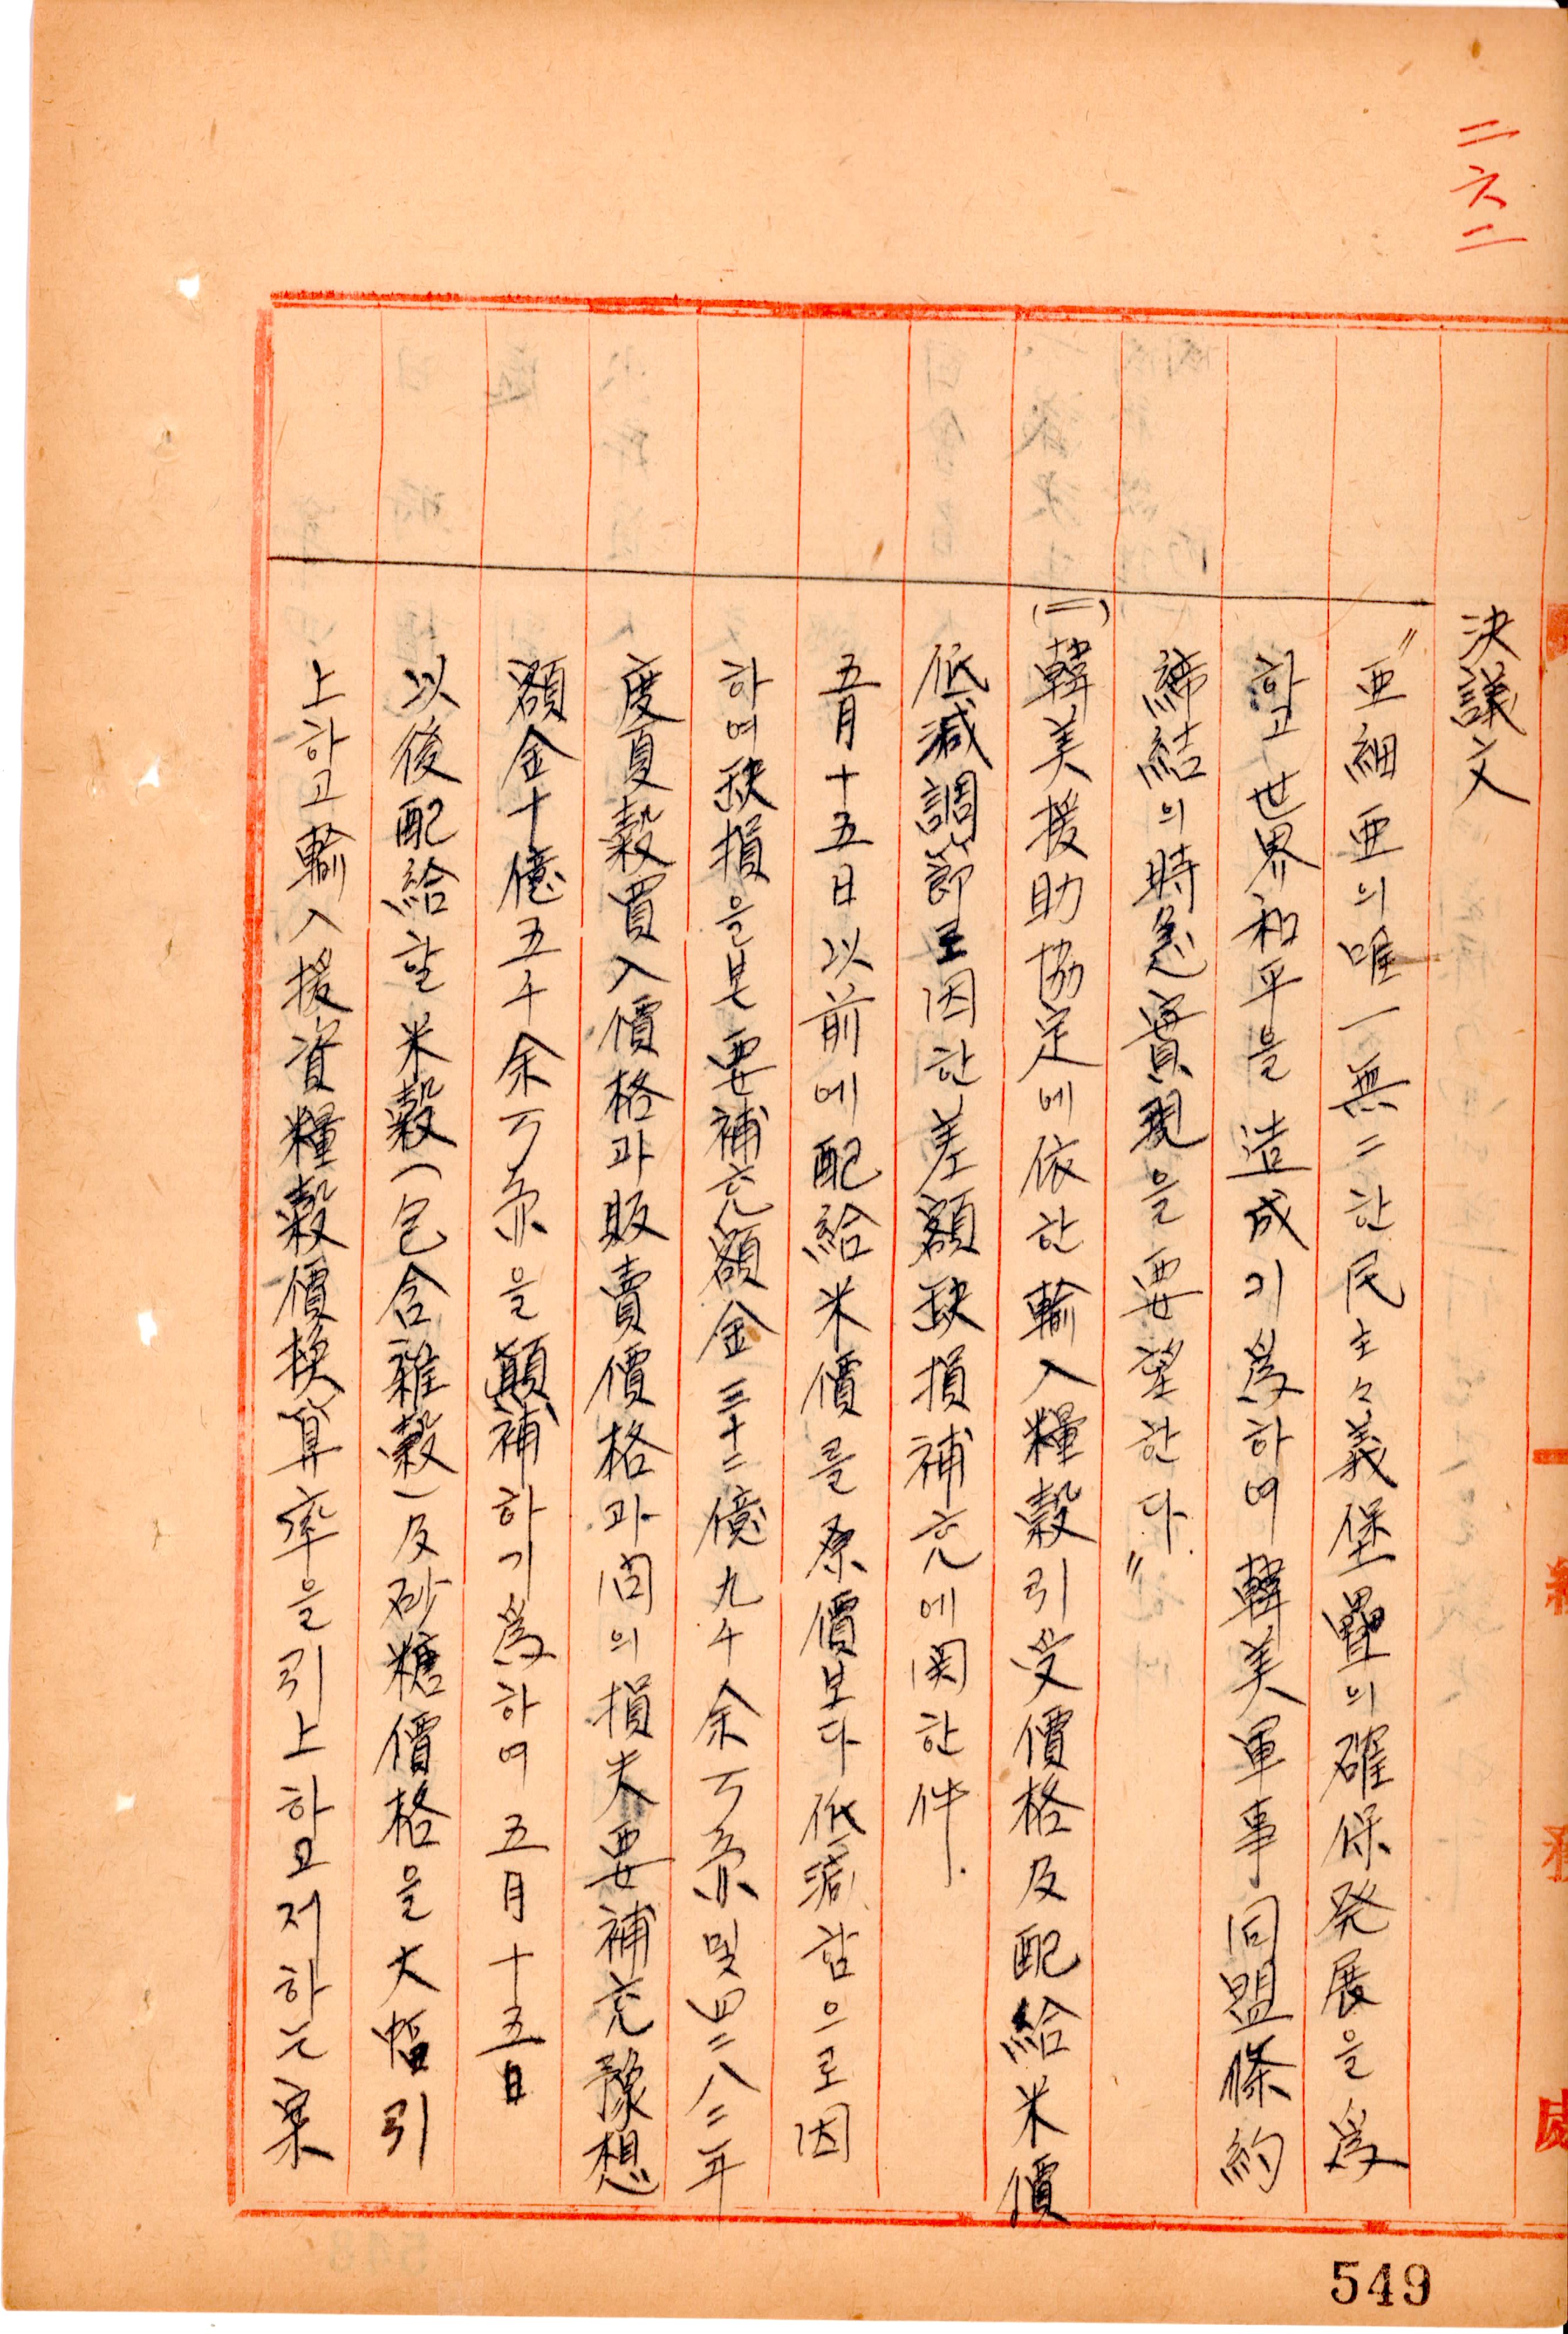 二六二
決議文
"亜細亜의唯一無二한民主々義堡壘의確保発展을爲
하고世界和平을造成키爲하여韓美軍事同盟條約
締結의時急實現을要望한다."
(二)韓美援助協定에依한輸入糧穀引受價格及配給米價
低減調節로因한差額缺損補充에関한件.
五月十五日以前에配給米價를原價보다低減함으로因
하여缺損을본要補充額金三十二億九千余万원및四二八二年
度夏穀買入價格과販賣價格과의間의損失要補充豫想
額金十億五千余万원을顚補하기爲하여五月十五日
以後配給할米穀(包含雜穀)及砂糖價格을大幅引
上하고輸入援資糧穀價換算率을引上하고저하는案
549